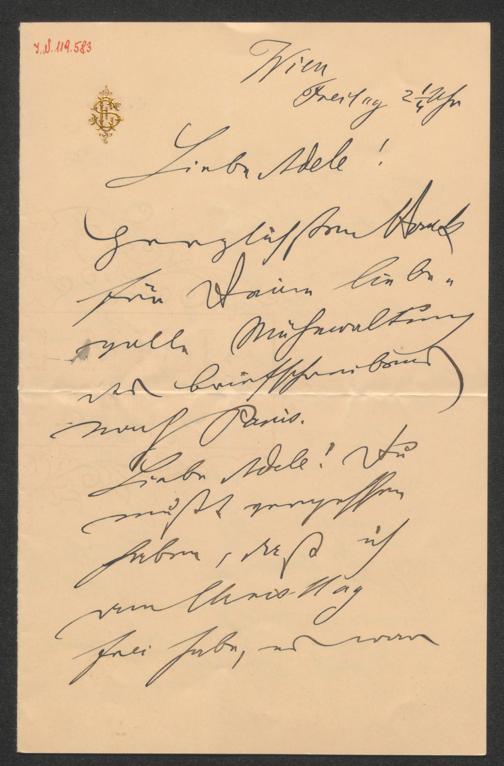 J.N. 119.583
Wien
Freitag 2¼ Uhr
Liebe Adele!
Herzlichsten Dank
für Deine liebe-
volle Mühewaltung
des Briefschreibens
nach Paris.
Liebe Adele! Du
mußt vergessen
haben, daß ich
am Christtag
frei habe, es war